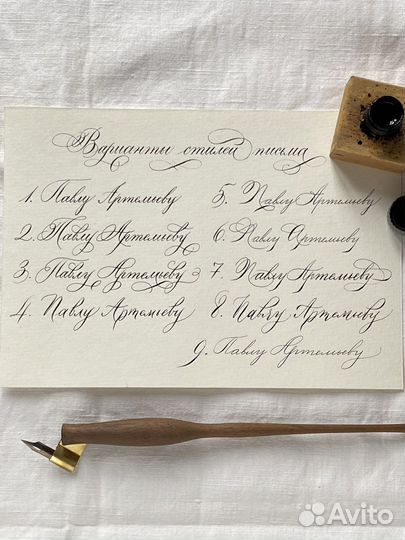 Варианты стилей письма
1. Павлу Артемьеву
2. Павлу Артемьеву
3. Павлу Артемьеву
4. Павлу Артемьеву
5. Павлу Артемьеву
6. Павлу Артемьеву
7. Павлу Артемьеву
8. Павлу Артемьеву
9. Павлу Артемьеву
Avito